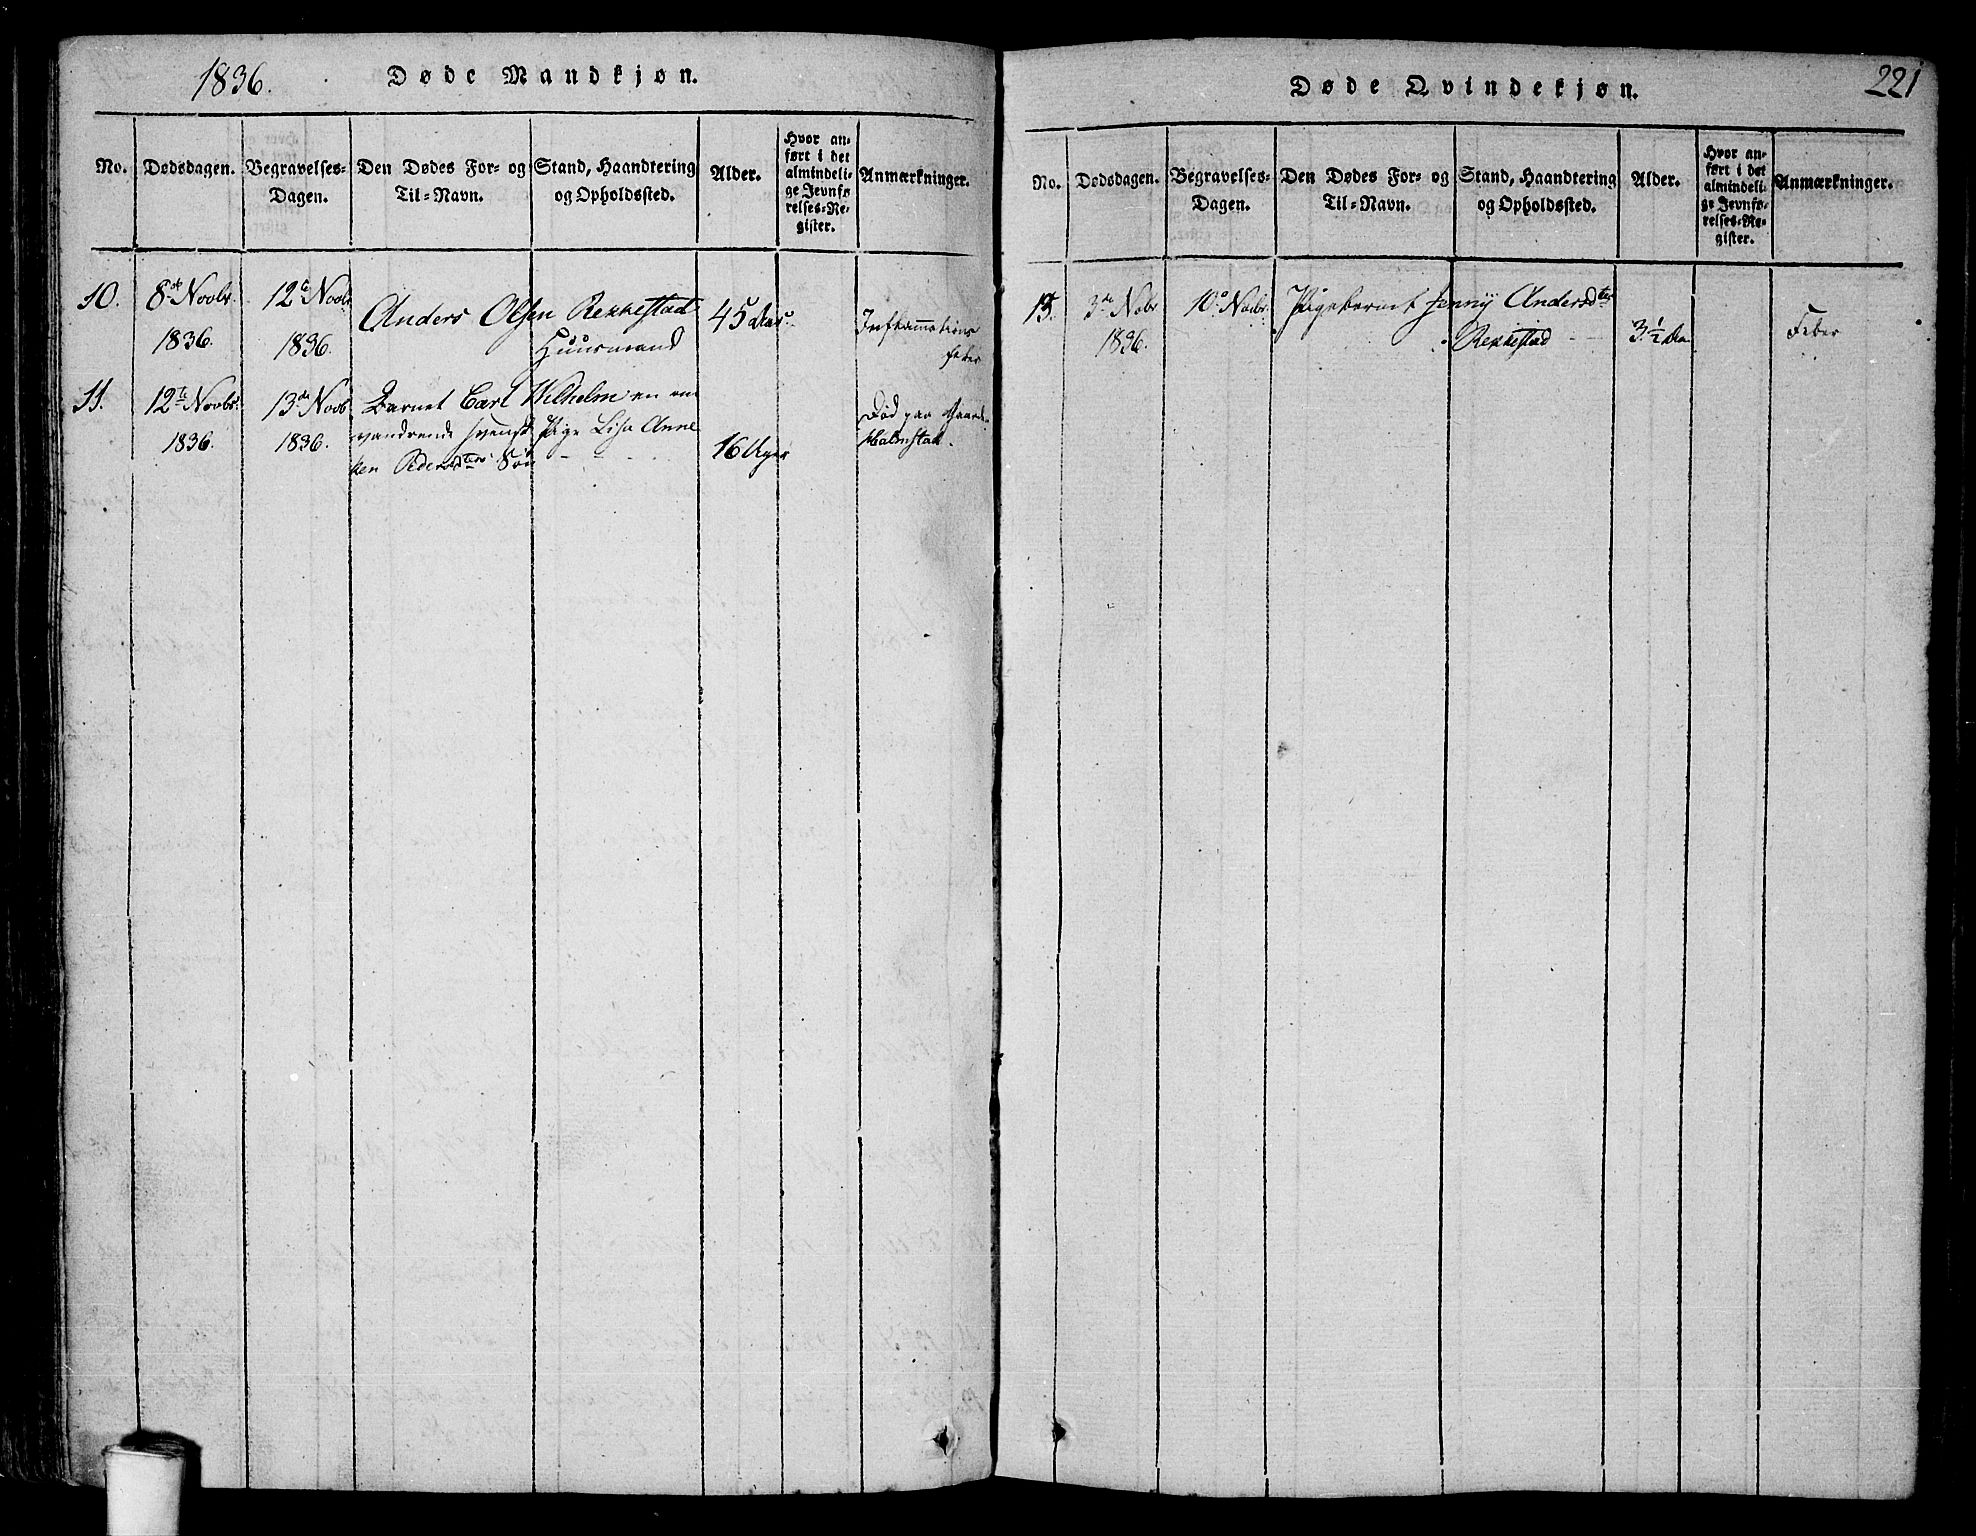 1836.
Døde Mandkjøn.
No.
Dødsdagen.
Begravelses-
Dagen.
Den Dødes For- og
Til-Navn.
Stand, Haandtering
og Opholdssted.
Alder.
Hvor an-
ført i det
almindeli-
ge Jevnfø-
relses-Re-
gister.
Anmærkninger.
10.
8de Novbr.
1836.
12te Novb.
1836.
Anders Olsen Rekkestad
Huusmand
45 Aar.
Inflammations
feber
11.
12te Novbr.
1836.
13de Novb.
1836.
Barnet Carl Wilhelm en om
vandrende svensk Pige Lisa Anne
Pedersdters Søn
16 Uger
Død paa Gaarden
Halmstad.
221
Døde Qvindekjøn.
No.
Dødsdagen.
Begravelses-
Dagen.
Den Dødes For- og
Til-Navn.
Stand, Haandtering
og Opholdssted.
Alder.
Hvor an-
ført i det
almindeli-
ge Jevnfø-
relses-Re-
gister.
Anmærkninger.
15.
3de Nobr
1836.
10de Novbr.
Pigebarnet Jenny Andersdter
Rekkestad
3 1/2 Aar
Feber